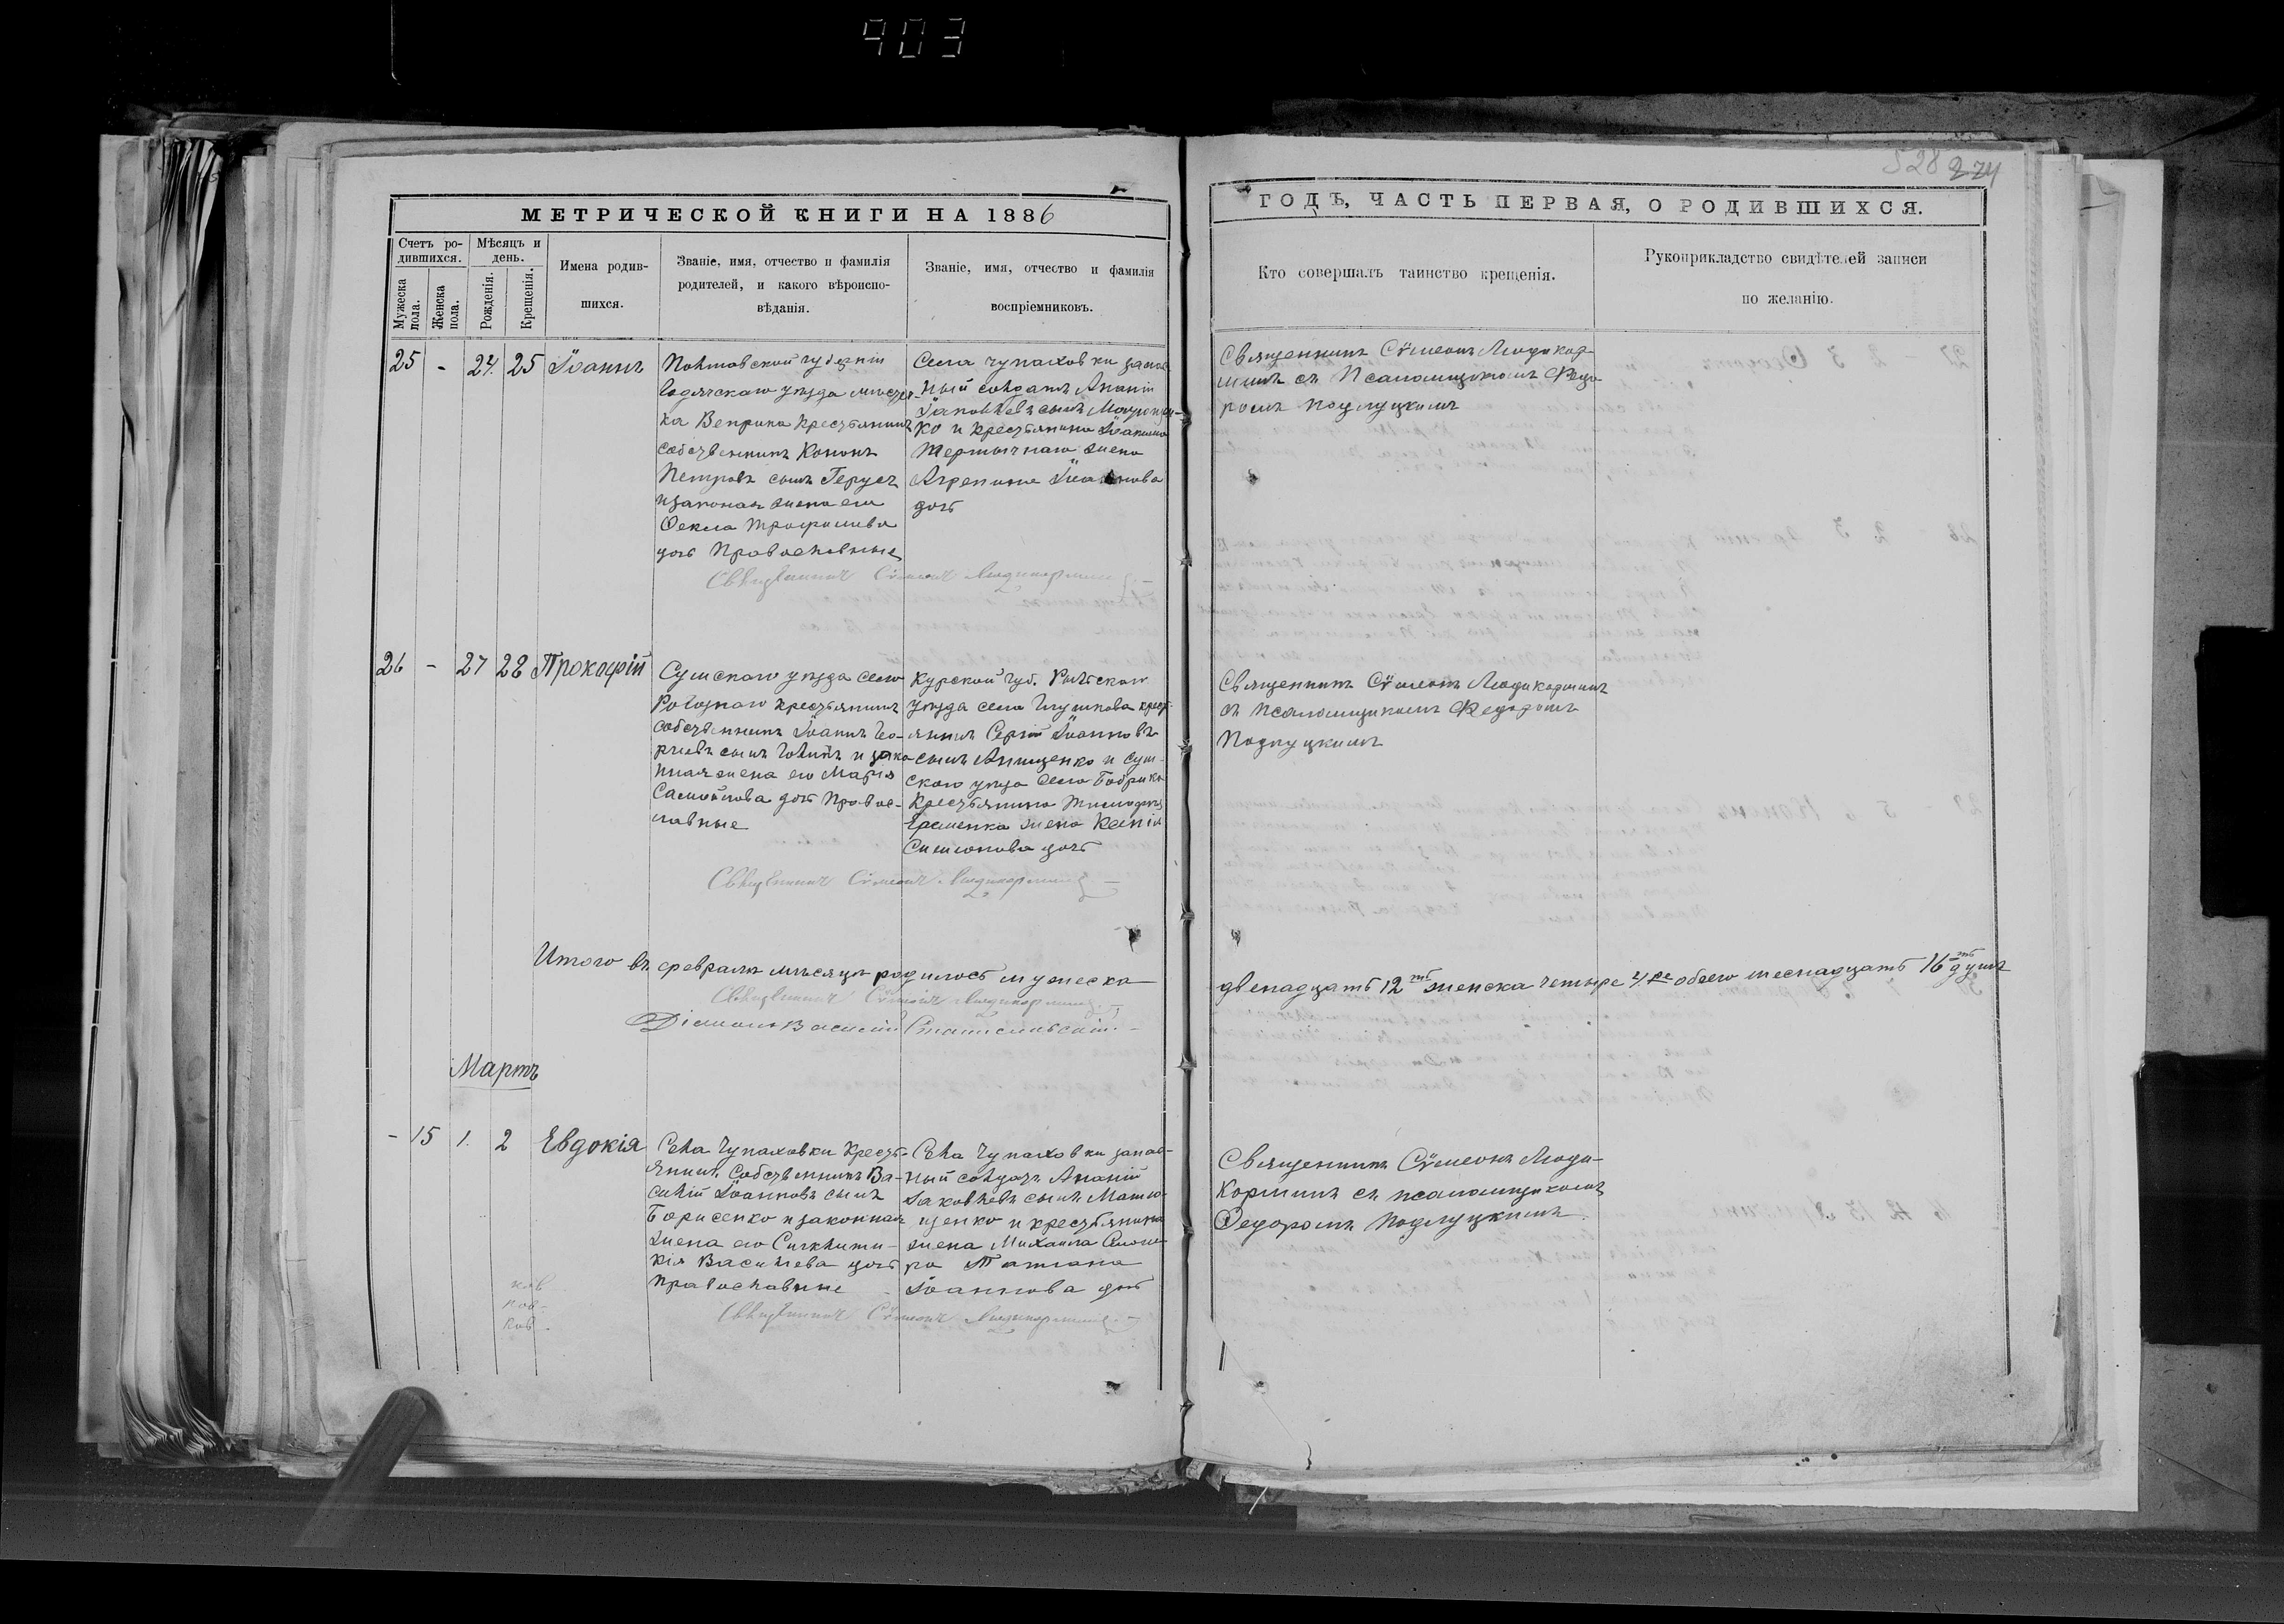 903
528 274
МЕТРИЧЕСКОЙ КНИГИ НА 1886
ГОДЪ, ЧАСТЬ ПЕРВАЯ, О РОДИВШИХСЯ.
Счетъ ро-
дившихся.
Мужеска
пола.
Женска
пола.
Мѣсяцъ и
день.
Рожденія.
Крещенія.
Имена родив-
шихся.
Званіе, имя, отчество и фамилія
родителей, и какого вѣроиспо-
вѣданія.
Званіе, имя, отчество и фамилія
воспріемниковъ.
Кто совершалъ таинство крещенія.
Рукоприкладство свидѣтелей записи
по желанію.
25 - 24. 25 Іоаннъ
Полтовской губерніи
Водячскаго уѣзда мѣстеч-
ка Веприка Крестьянинъ
собственникъ Кононъ
Петровъ сынъ Герусъ
и законая жена его
Ѳекла Трофимова
дочь Православные
Села Чупаховки запас-
ный солдатъ Ананій
Іаковлевъ сынъ
ко и крестьянина Іоакима
жена
Агрепина
дочь
Священникъ Сѵмеонъ Людикор-
минъ съ Псаломщикомъ Федо-
ромъ Подлуцкимъ
Священникъ Сѵмеонъ Людикорминъ
26 - 27 28 Прокофій
Сумскаго уѣзда села
крестьянинъ
собственникъ Іоаннъ Ге-
ргіевъ сынъ и зако
нная жена его Марія
Самойлова дочь Правос-
лавные
Курской губ. Рыльскаго
уѣзда села Глушкова крест-
янинъ Сергій Іоанновъ
сынъ Анищенко и Сум-
скаго уѣзда села Бобрика
Крестьянина Тимофея
Еременка жена Ксенія
Симеонова дочь
Священникъ Сѵмеонъ Людикорминъ
съ псаломщикомъ Федоромъ
Подлуцкимъ
Священникъ Сѵмеонъ Людикорминъ
Итого въ февралѣ мѣсяцѣ родилось мужеска
двенадцать 12ть женска четыре 4ре обоего шеснадцать 16ть душъ
Священникъ Сѵмеонъ Людикорминъ
Діаконъ Василій Станиславскій
Мартъ
- 15 1. 2 Евдокія
Села Чупаховки Крест-
янинъ Собственникъ Ва-
силій Іоанновъ сынъ
Борисенко и законная
жена его Синклити-
кія Васильева дочь
Православные
Села Чупаховки запас-
ный солдатъ Ананій
Іаковлевъ сынъ Матю-
щенко и крестьянина
жена Михаила
ра Татіана
Іоаннова дочь
Священникъ Сѵмеонъ Люди-
корминъ съ псаломщикомъ
Ѳедоромъ Подлуцкимъ
Священникъ Сѵмеонъ Людикорминъ